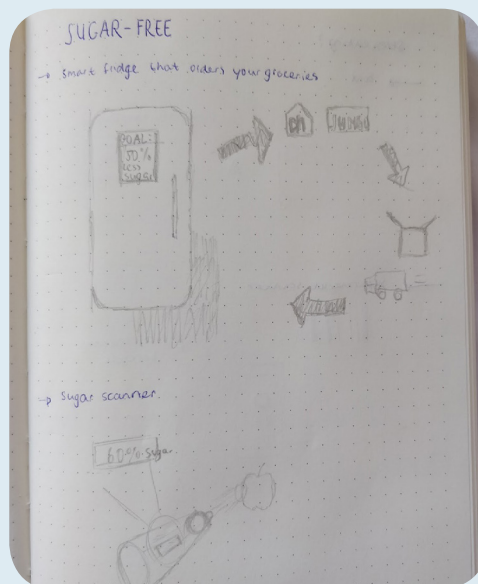 SUGAR-FREE
→ Smart fridge that orders your groceries
GOAL:
50%
less
sugar
ah
JUMBO
→ Sugar scanner.
60% sugar